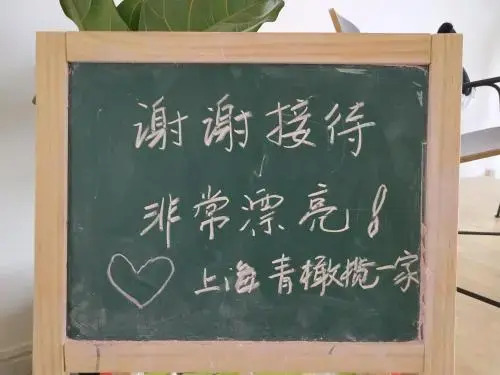 谢谢接待
非常漂亮！
上海青橄榄一家